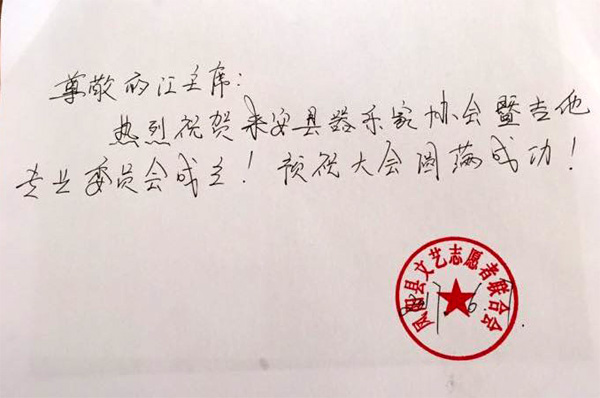 尊敬的江主席：
热烈祝贺来安县器乐家协会暨吉他
专业委员会成立！预祝大会圆满成功！
凤阳县文艺志愿者联合会